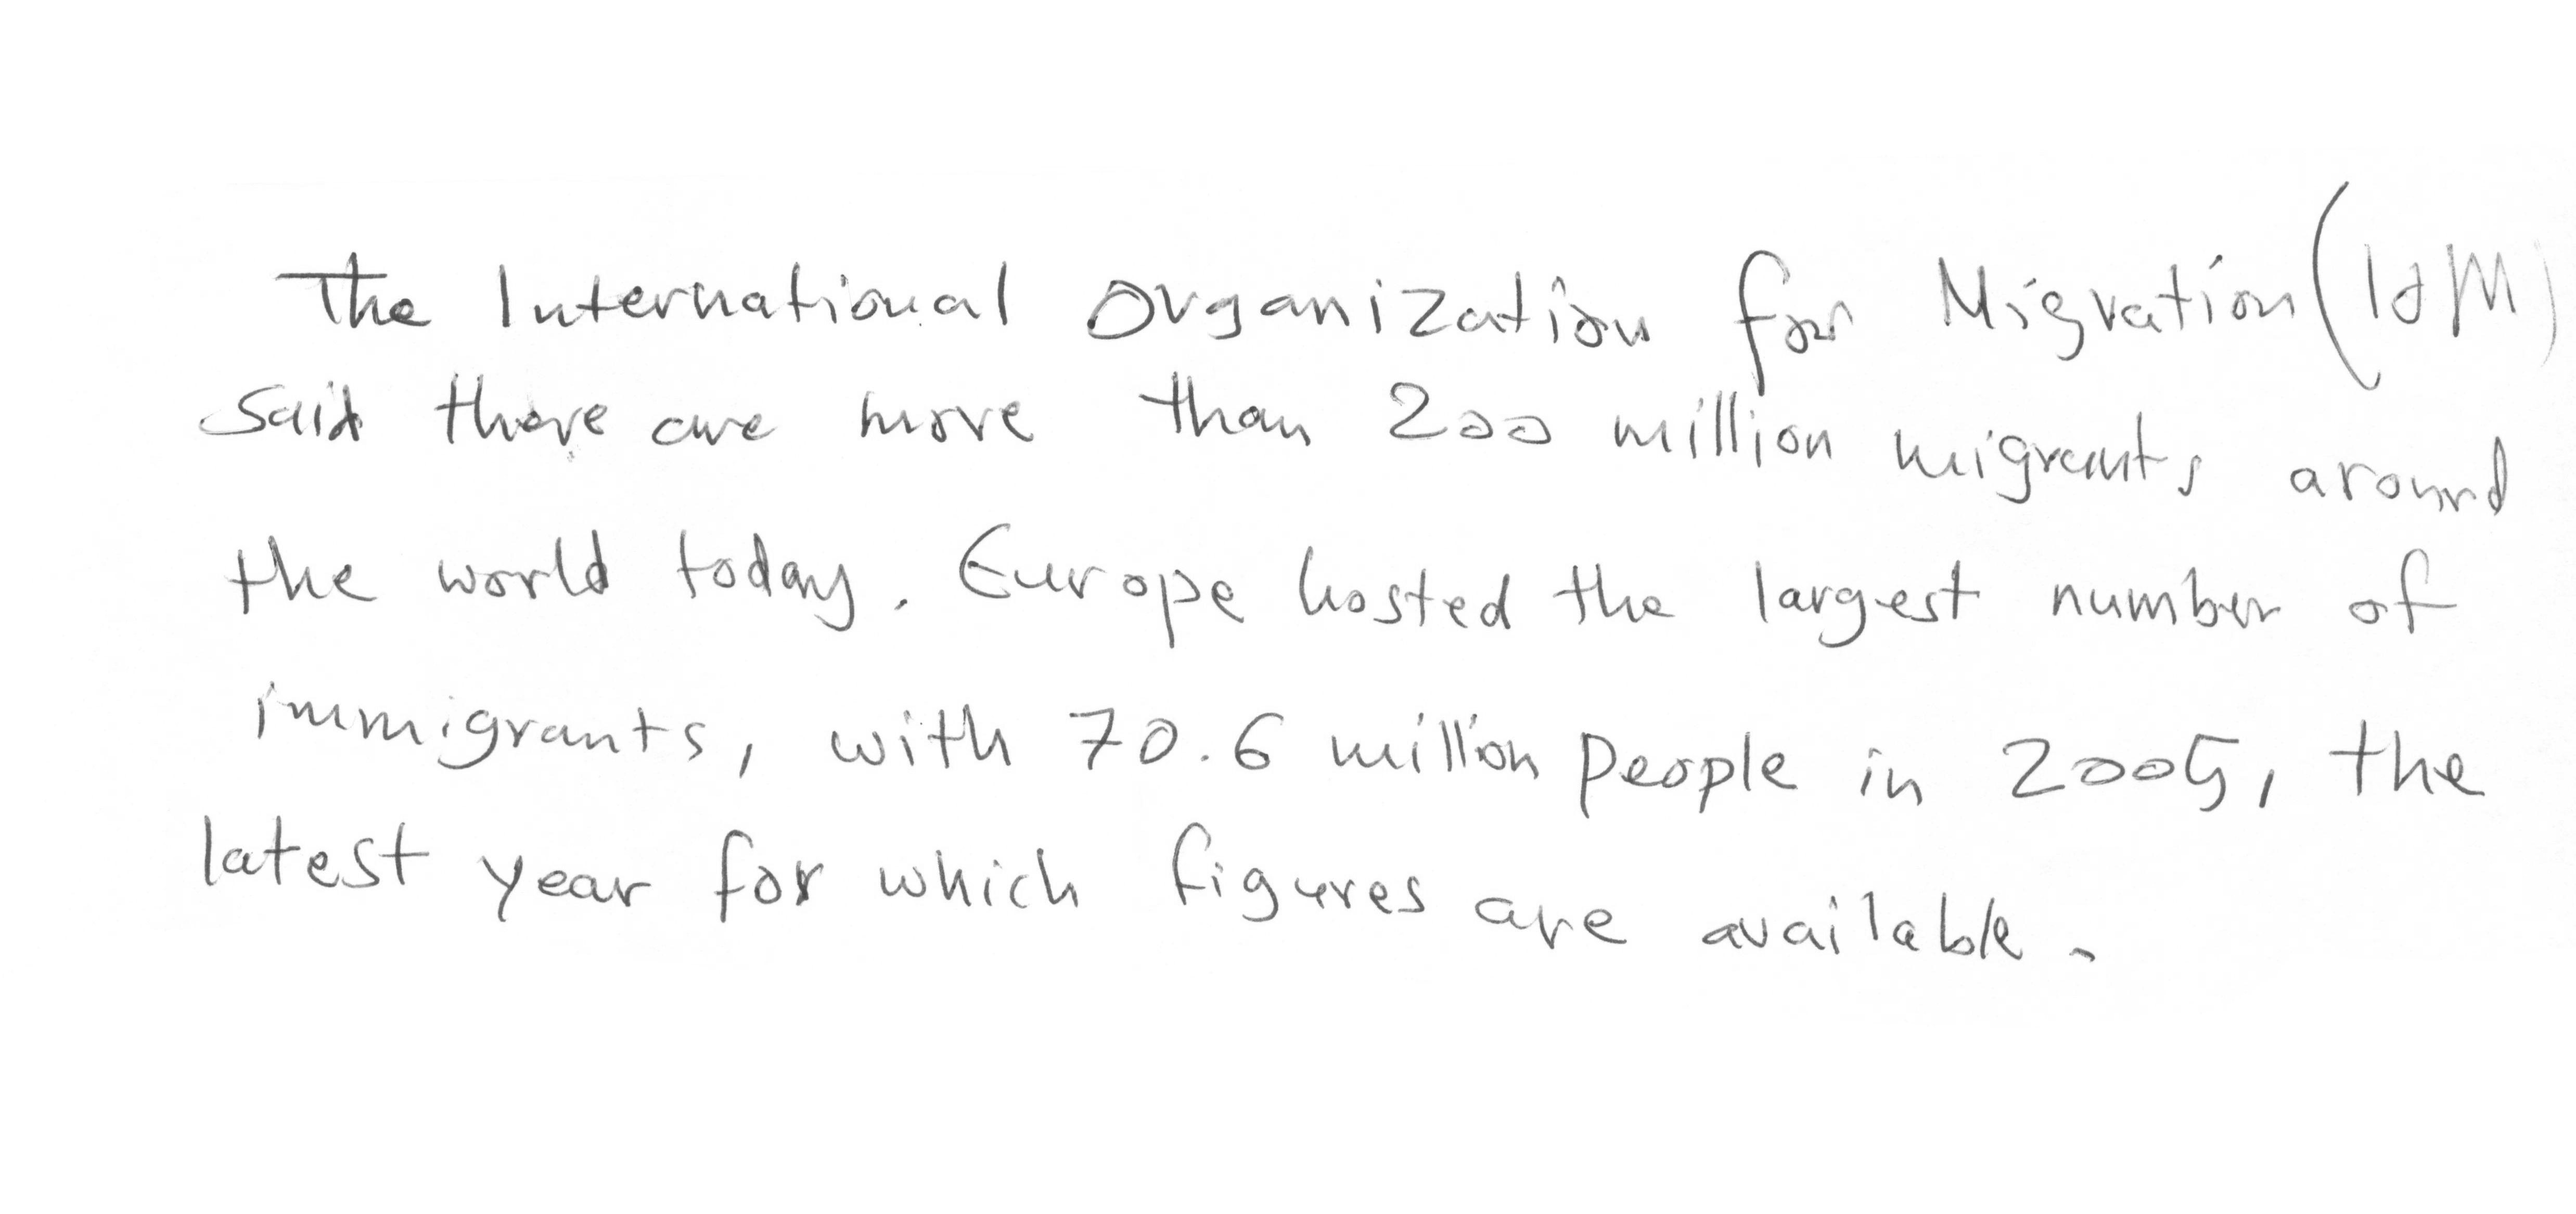 The International Organization for Migration (IOM)
said there are more than 200 million migrants around
the world today. Europe hosted the largest number of
immigrants, with 70.6 million people in 2005, the
latest year for which figures are available.